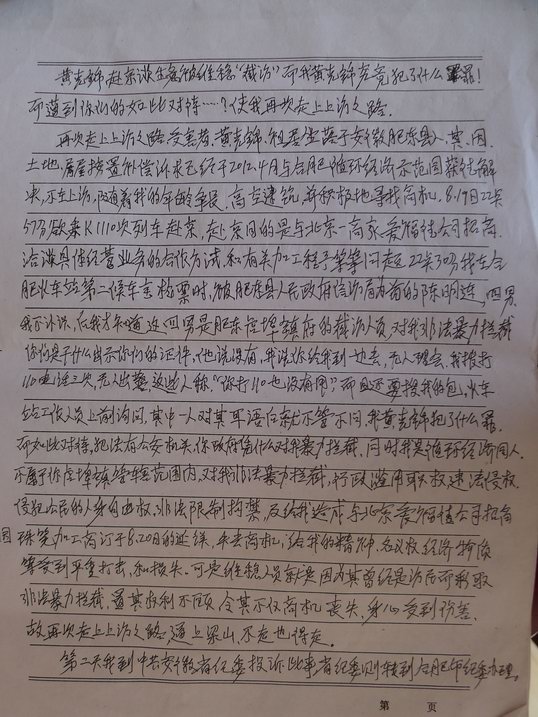 黄克锦赴京谈生意被维稳“截访”而我黄克锦究竟犯了什么罪！
而遭到你们的如此对待……？使我再次走上上访之路。
再次走上上访之路受害者，黄克锦，祖居坐落于安徽肥东县人，其，因
土地，房屋拆置补偿诉求已经于2012.4月与合肥循环经济示范园蔡结解
决，不在上访，随着我的年龄，高空建筑，并积极地寻找商机。8.19日22点
57分欲乘K1110次列车赴京，赴京目的是与北京一商家爱福佳公司招商
洽谈具体经营业务的合作方式，和有关加工程序等等问题22点30分我在合
肥火车站第二候车室检票时，被肥东县人民政府信访局为首的陈明连，四男
我不认识，后我才知道这四男是肥东店埠镇府的截访人员，对我非法暴力拦截
你们凭什么出示你们的证件，他说没有，我说你给我到一边去，无人理会，我拨打
110电话三次，无人出警这些人称“你打110也没有用”而且还要搜我的包，火车
站工作人员上前询问，其中一人对其耳语后就不管不问，我黄克锦犯了什么罪，
而如此对待，犯法有公安机关，你政府凭什么对我暴力拦截，同时我是循环经济园人，
不属于你店埠镇管辖范围内，对我非法暴力拦截，行政滥用职权违法侵权，
侵犯公民的人身自由权，非法限制拘禁，及给我造成与北京爱福佳公司招商
因珠算加工商订于8.20日的延误，失去商机，给我的精神，名义权经济物质
等受到严重打击，和损失。可是维稳人员就是因为其曾经是访民而采取
非法暴力拦截，置其权利不顾，令其不仅商机丧失，身心受到伤害，
故再次走上上访之路，逼上梁山，不走也得走。
第二天我到中共安徽省纪委投诉此事，省纪委则转到合肥市纪委办理。
第 页